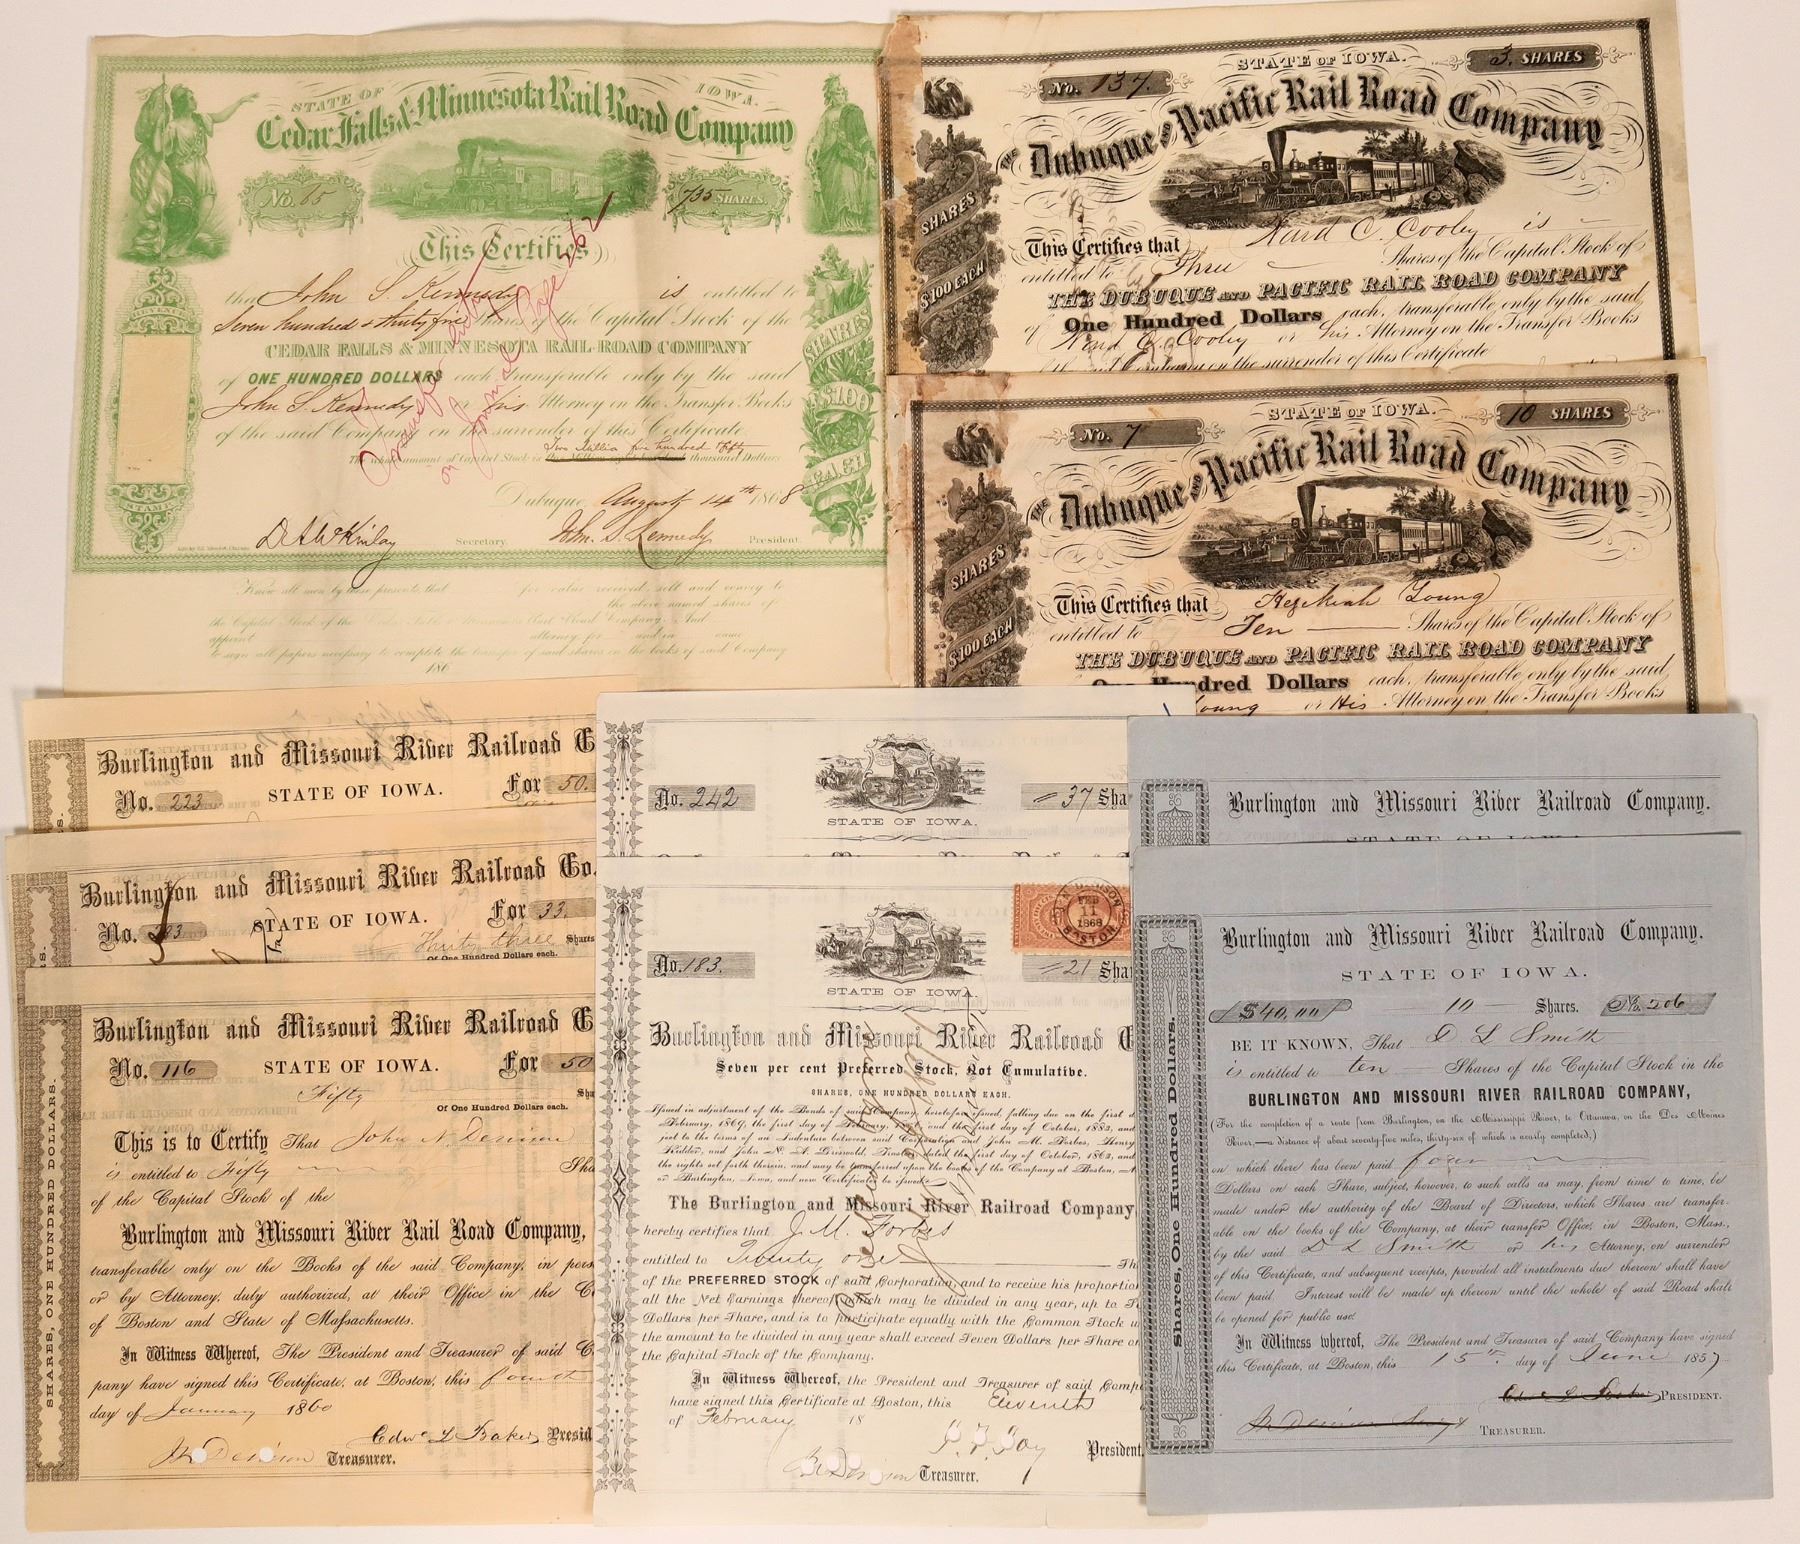 STATE OF IOWA.
Cedar Falls & Minnesota Rail Road Company
No. 65
735 SHARES.
This Certifies
that John S. Kennedy is entitled to
Seven hundred & thirty five Shares of the Capital Stock of the
CEDAR FALLS & MINNESOTA RAIL-ROAD COMPANY
of ONE HUNDRED DOLLARS each, transferable only by the said
John S. Kennedy or his Attorney on the Transfer Books
of the said Company on the surrender of this Certificate.
Two Million five hundred fifty
The whole amount of Capital Stock is thousand Dollars
Dubuque, August 14th 1868
Secretary. John S. Kennedy President.
REVENUE
STAMP
SHARES
$100
EACH
Know all men by these presents, that for value received, sell and convey to
the above named shares of
the Capital Stock of the Cedar Falls & Minnesota Rail Road Company. And
appoint attorney for and in name
to sign all papers necessary to complete the transfer of said shares on the books of said Company
186
STATE OF IOWA.
No. 137.
3. SHARES
THE Dubuque AND Pacific Rail Road Company
SHARES
$100 EACH
This Certifies that Ward C. Cooley is
entitled to Three Shares of the Capital Stock of
THE DUBUQUE AND PACIFIC RAIL ROAD COMPANY
of One Hundred Dollars each, transferable only by the said
Ward C. Cooley or his Attorney on the Transfer Books
of the said Company on the surrender of this Certificate
STATE OF IOWA.
No. 7
10 SHARES
THE Dubuque AND Pacific Rail Road Company
SHARES
$100 EACH
This Certifies that Hezekiah Young
entitled to Ten Shares of the Capital Stock of
THE DUBUQUE AND PACIFIC RAIL ROAD COMPANY
One Hundred Dollars each, transferable only by the said
Young or His Attorney on the Transfer Books
Burlington and Missouri River Railroad C
No. 223 STATE OF IOWA. For 50.
Burlington and Missouri River Railroad Co.
No. STATE OF IOWA. For 33.
Thirty three Shares
Of One Hundred Dollars each.
Burlington and Missouri River Railroad C
No. 116 STATE OF IOWA. For 50
Fifty Sha
Of One Hundred Dollars each.
This is to Certify That John N. Denison
is entitled to Fifty Sha
of the Capital Stock of the
Burlington and Missouri River Rail Road Company,
transferable only on the Books of the said Company, in pers
or by Attorney, duly authorized, at their Office in the C
of Boston and State of Massachusetts.
In Witness Whereof, The President and Treasurer of said C
pany have signed this Certificate, at Boston, this fourth
day of January 1860
Edw. L. Baker Presid
J N Denison Treasurer.
SHARES, ONE HUNDRED DOLLARS.
No. 242
37 Sha
STATE OF IOWA.
FEB
11
1868
BOSTON
No. 183.
21 Sha
STATE OF IOWA.
Burlington and Missouri River Railroad C
Seven per cent Preferred Stock, Not Cumulative.
SHARES, ONE HUNDRED DOLLARS EACH.
Issued in adjustment of the Bonds of said Company heretofore issued, falling due on the first d
February, 1869, the first day of February, and the first day of October, 1883, and
just to the terms of an Indenture between said Corporation and John M. Forbes, Henry
Kidder, and John N. A. Griswold, Trustees, dated the first day of October, 1863, and
the rights set forth therein, and may be transferred upon the books of the Company at Boston,
or Burlington, Iowa, and new Certificates be issued.
The Burlington and Missouri River Railroad Company,
hereby certifies that J. M. Forbes
entitled to Twenty one Sh
of the PREFERRED STOCK of said Corporation, and to receive his proportio
all the Net Earnings thereof, which may be divided in any year, up to S
Dollars per Share, and is to participate equally with the Common Stock
the amount to be divided in any year shall exceed Seven Dollars per Share o
the Capital Stock of the Company.
In Witness Whereof, the President and Treasurer of said Comp
have signed this Certificate at Boston, this Eleventh
of February 18
President
Treasurer.
Burlington and Missouri River Railroad Company.
STATE OF IOWA
Burlington and Missouri River Railroad Company.
STATE OF IOWA.
$40.00 10 Shares. No. 206
BE IT KNOWN, That D L Smith
is entitled to ten Shares of the Capital Stock in the
BURLINGTON AND MISSOURI RIVER RAILROAD COMPANY,
(For the completion of a route from Burlington, on the Mississippi River, to Ottumwa, on the Des Moines
River,—a distance of about seventy-five miles, thirty-six of which is nearly completed,)
on which there has been paid four
Dollars on each Share, subject, however, to such calls as may, from time to time, be
made under the authority of the Board of Directors, which Shares are transfer-
able on the books of the Company, at their transfer Office, in Boston, Mass.,
by the said D L Smith or his Attorney, on surrender
of this Certificate, and subsequent receipts, provided all instalments due thereon shall have
been paid. Interest will be made up thereon until the whole of said Road shall
be opened for public use.
In Witness whereof, The President and Treasurer of said Company have signed
this Certificate, at Boston, this 15th day of June 1857
PRESIDENT.
TREASURER.
Shares, One Hundred Dollars.